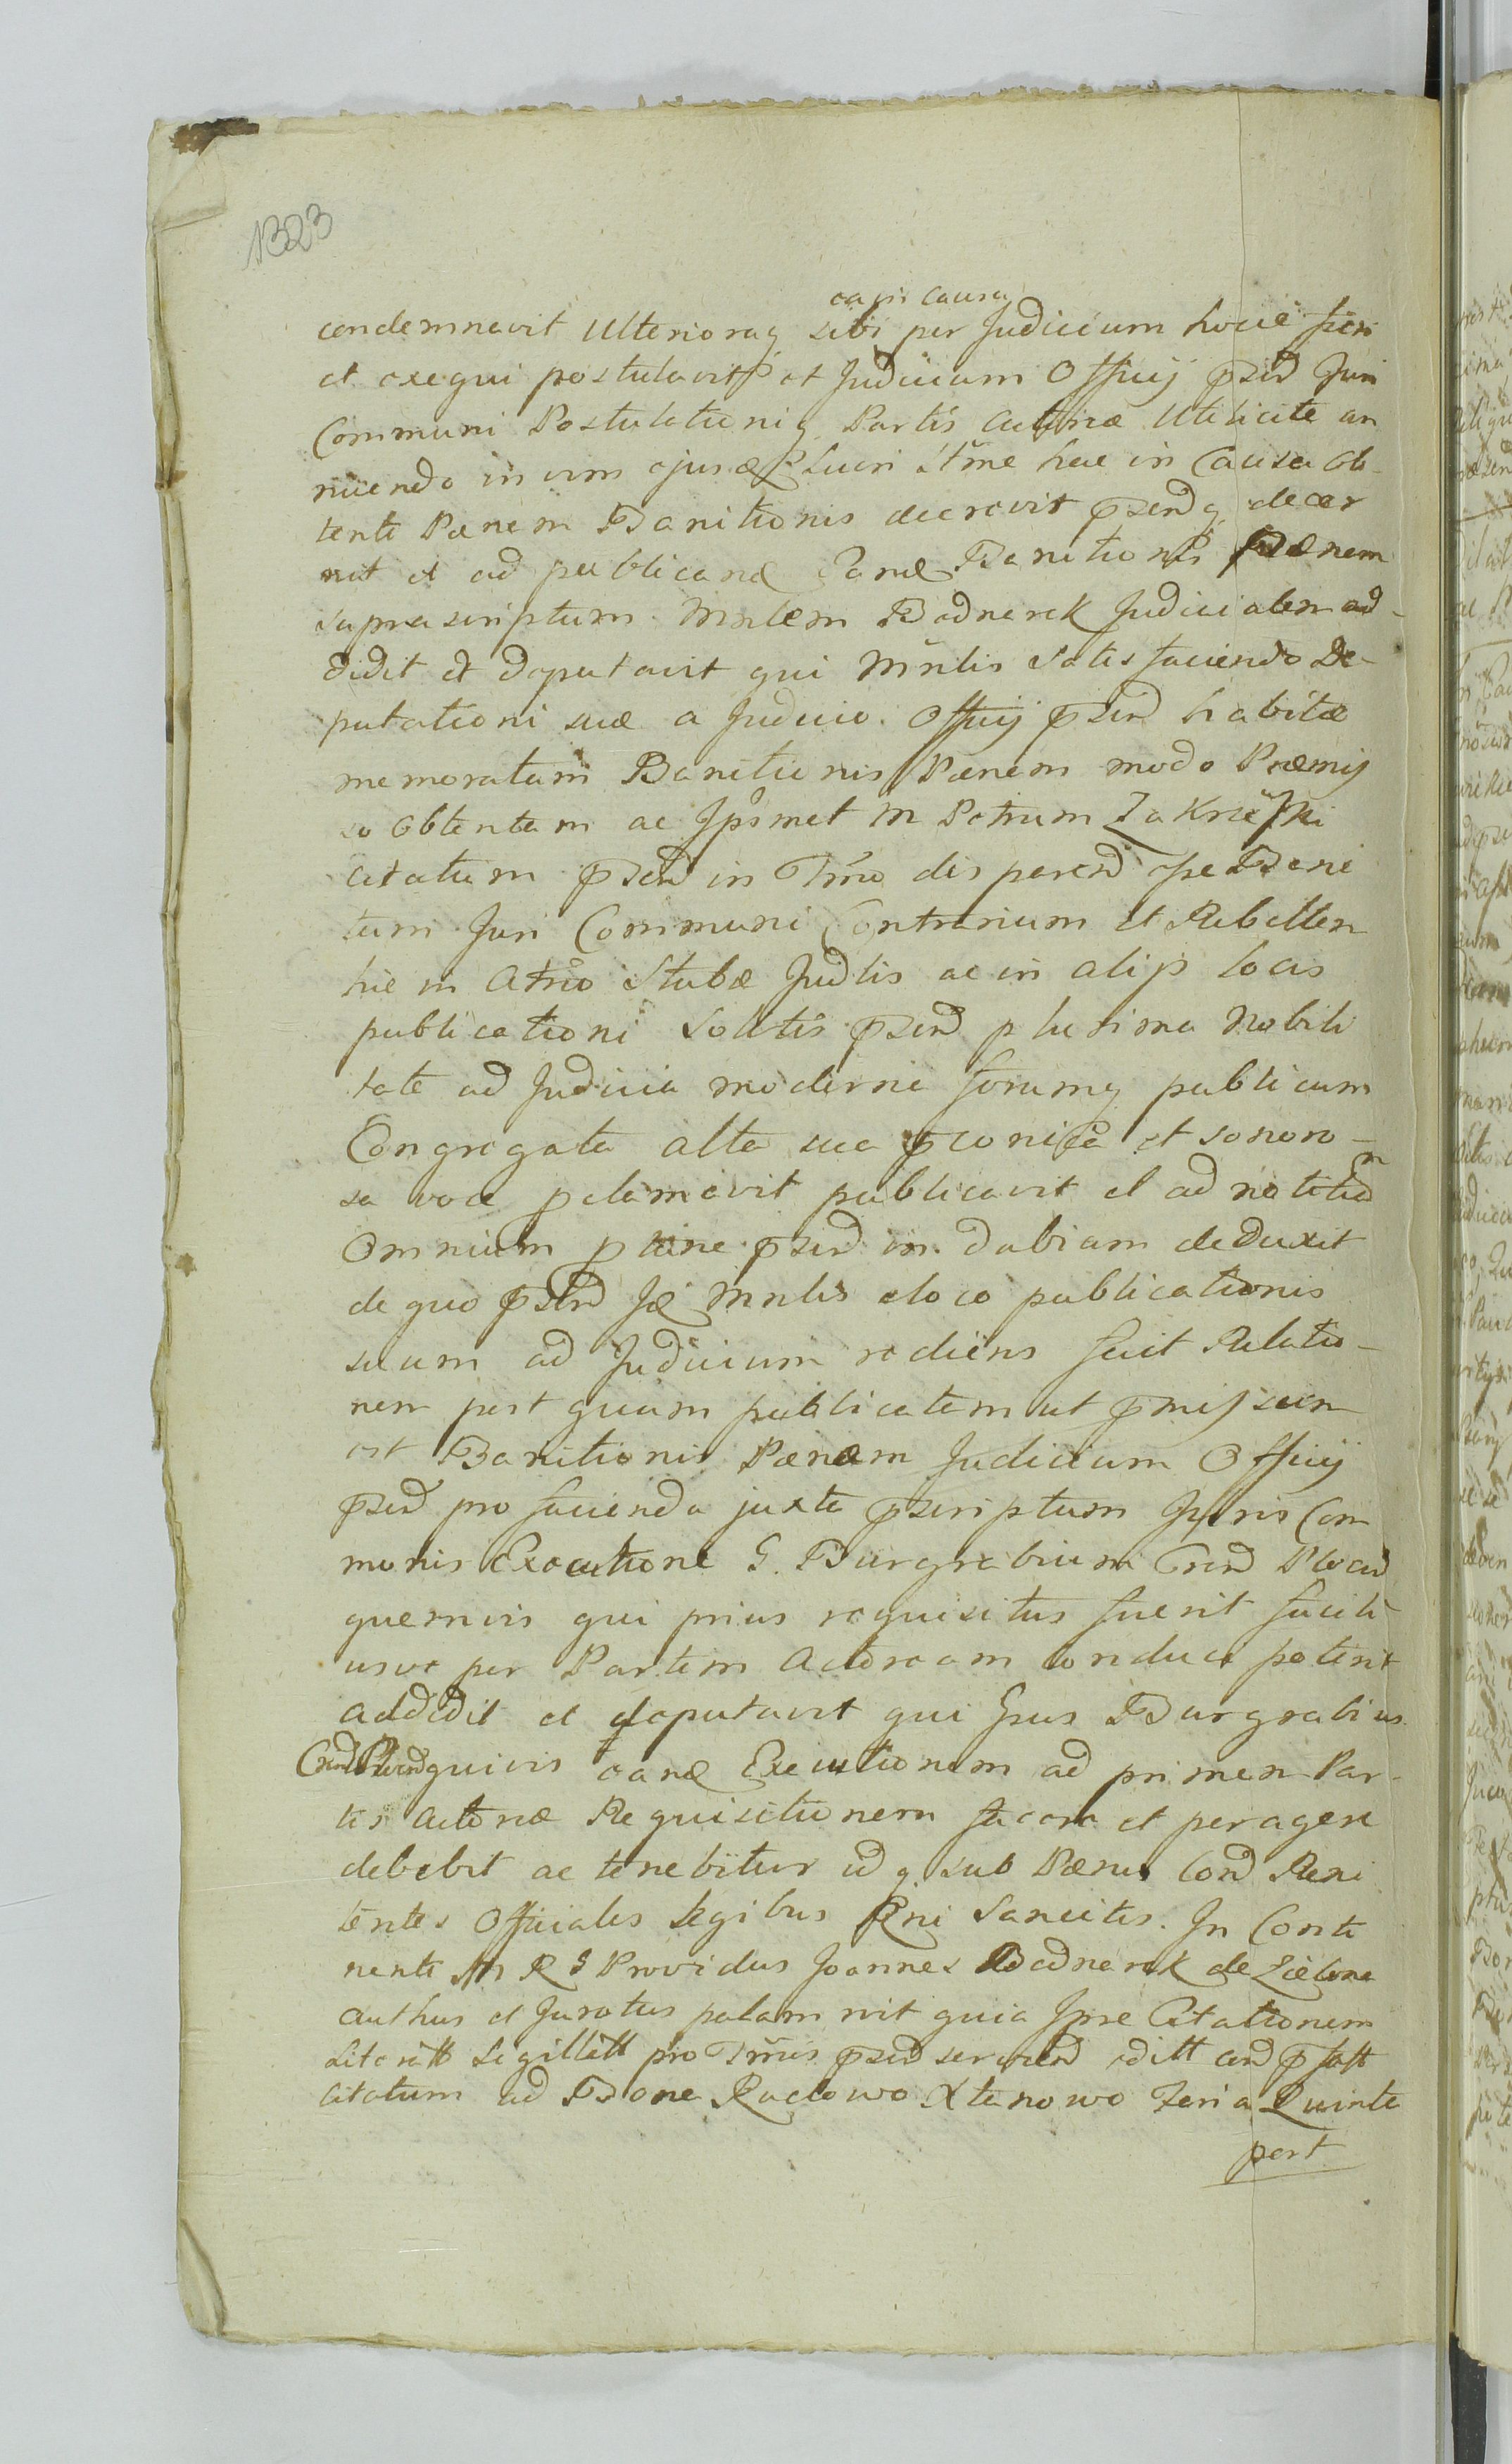 1323
ea in causa
condemnavit Ulterioraq sibi per Judicium hocce fieri
et exequi postulavit et Judicium Officij psen Juri
Communi Postulationiq Partis Actoreæ Uti licite an
nuendo in vim ejusd Lucri sttme hac in Causa Ob-
tenti Pænam Banitionis decrevit psendq decer
nit et ad publicand Eand Banitionis Pænam
suprascriptum Mnlem Bodnarek Judicialem ad-
didit et deputavit qui Mnlis Satisfaciendo De-
putationi suæ a Judicio Officij psen habitæ
memoratam Banitionis Pænam modo Præmis
so Obtentam ac Jpsmet M Petrum Zakrzeski
citatum psen in Tmo disparend pe Bani
tum Juri Communi Contrarium et Rebellem
hic in Atrio Stubæ Judlis ac in alijs locis
publicationi Solitis psen plurima Nobili
tate ad Judicia moderna forumq publicum
Congregata alta sua pconica et sonoro-
sa voce pclamavit publicavit et ad notitiam
Omnium plane psen in dubiam deduxit
de quo psen Jd Mnlis eloco publicationis
suum ad Judicium rediens fecit Relatio-
nem post quam publicatam ut pmissum
est Banitionis Pænam Judicium Officij
psen pro facienda juxta pscriptum Juris Com
munis Executione G. Burgrabium Crend Plocen
quemvis qui prius requisitus fuerit facili
usve per Partem Actoream conduci poterit
addidit et deputavit qui Gnus Burgrabius
Crend Plocend quivis eand Executionem ad primam Par-
tis Actoreæ Requisitionem facere et peragere
debebit ac tenebitur idq sub Pænis Cond Reni
tentes Officiales legibus Rni Sancitis. In Conti
nenti M R S Providus Joannes Bodnarek de Zielona
authus et Juratus palam nit quia Jpse Citationem
Literatt Sigillatt pro Tmis psen serviend editt cend pfatt
citatum ad Bona Raciowo Xtenowo Feria Quinta
post